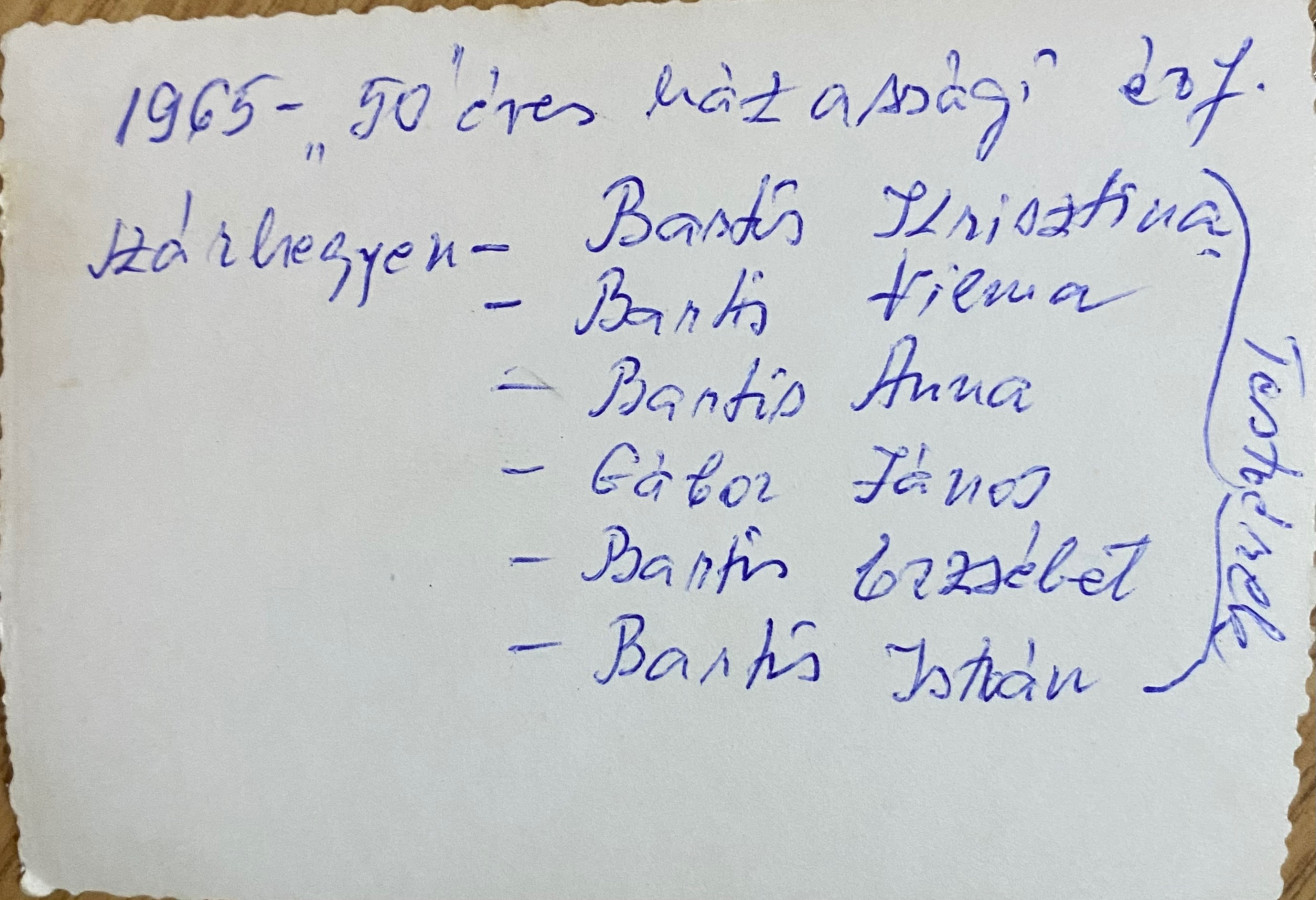 1965- „50" éves házassági évf.
Szárhegyen - Bartis Krisztina
- Bartis Vilma
- Bartis Anna
- Gábor János
- Bartis Erzsébet
- Bartis István
Testvérek